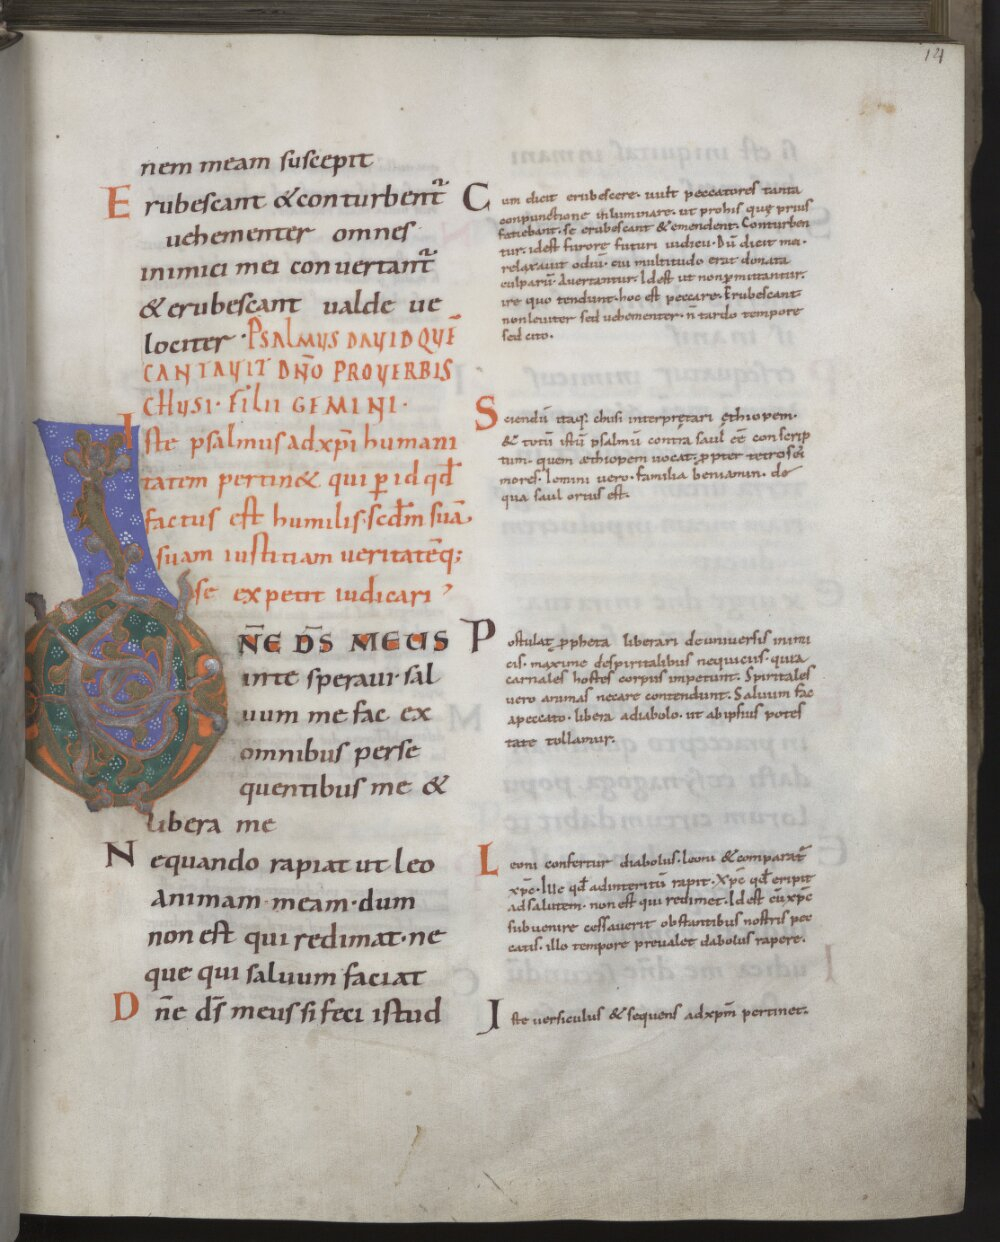 14
nem meam suscepit
Erubescant & conturbent̄
uehementer omnes
inimici mei conuertant̄
& erubescant ualde ue
lociter · PSALMUS DAVID QUĒ
CANTAVIT DN̄O PRO VERBIS
CHUSI · FILII GEMINI ·
Iste psalmus ad xp̄i humani
tatem pertin& qui p̱ id qd̄
factus est humilis · scdm̄ suā
suam iustitiam ueritatēq;
se expetit iudicari
DN̄E DS̄ MEUS
inte speraui · sal
uum me fac ex
omnibus perse
quentibus me &
libera me
Nequando rapiat ut leo
animam · meam · dum
non est qui redimat · ne
que qui saluum faciat
Dn̄e ds̄ meus si feci istud
Cum dicit erubescere · uult peccatores tanta
conpunctione inluminare · ut prohis quę prius
faciebant · se erubescant & emendent · Conturben
tur · idest furore futuri iudicii · Dū dicit mei ·
relaxauit odiū · cui multitudo erat donata
culparū · Auertantur · Idest ut non p̱mittantur ·
ire quo tendunt · hoc est peccare · Erubescant
non leuiter sed uehementer · n̄ tardo tempore
sed cito ·
Sciendū itaq; chusi interprętari ęthiopem ·
& totū istū psalmū contra saul eē conscrip
tum · quem æthiopem uocat · p̱pter tetros ei
mores · Iemini uero · familia beniamin · de
qua saul ortus est ·
Postulat p̱pheta liberari de uniuersis inimi
cis · maxime de spiritalibus nequiciis · quia
carnales hostes corpus impetunt · Spiritales
uero animas necare contendunt · Saluum fac
a peccato · libera a diabolo · ut ab ipsius potes
tate tollamur ·
Leoni confertur diabolus · leoni & comparat̄
xp̄c · Ille qd̄ ad interitū rapit · Xp̄c qd̄ eripit
ad salutem · non est qui redimet · Idest cū xp̄c
subuenire cessauerit obstantibus nostris pec
catis · illo tempore preualet dabolus rapere ·
Iste uersiculus & sequens ad xp̄m pertinet ·